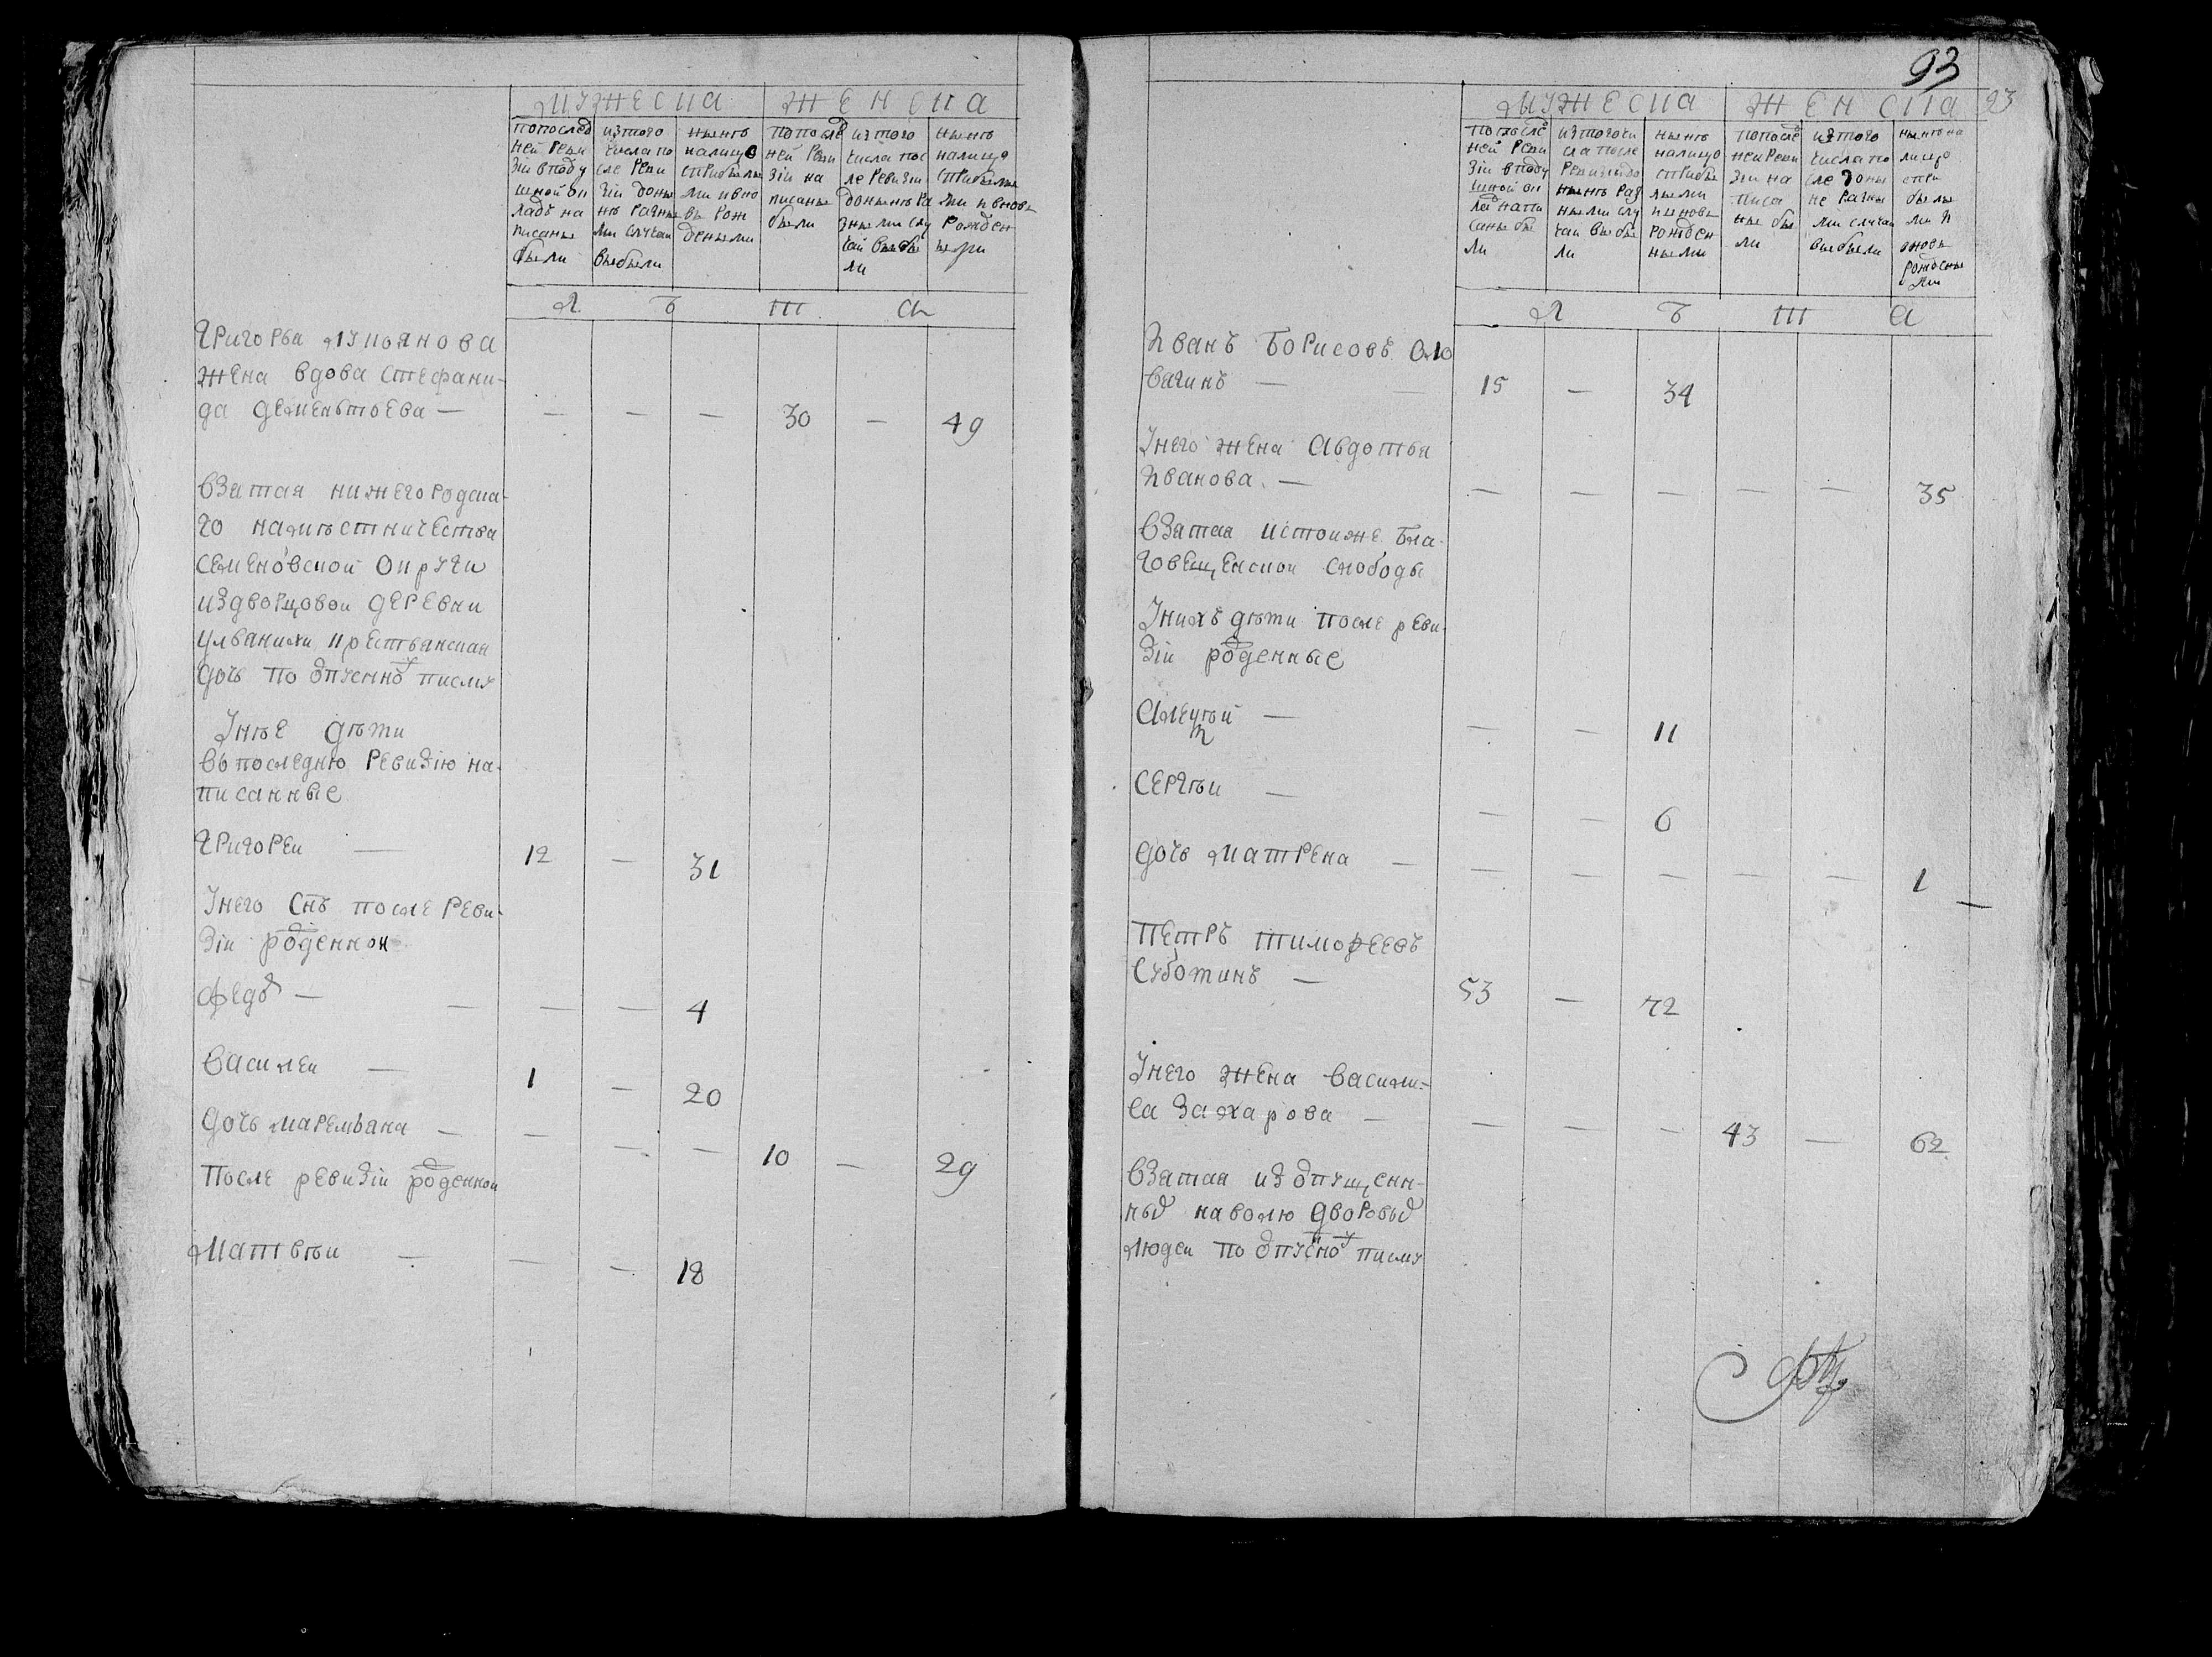 мужеска женска
попослед
ней реви
зіи вподу
шной ок
ладъ на
писаны
были
изтого
числа по
сле реви
зіи доны
нѣ разны
ми случаи
выбыли
нынѣ
налицо
сприбылы
ми ивно
вь рож
деными
попослѣд
ней реви
зіи на
писаны
были
изтого
числа пос
ле ревизіи
донынѣ ра
зными слу
чаи выбы
ли
нынѣ
налицо
сприбылы
ми ивновь
рожден
Л Ѣ Т А
Григорья лукоянова
жена вдова стефани-
да дементьева — — — — 30 — 49
взятая нижегородска-
го намѣстничества
семеновской округи
издворцовои деревни
крестьянская
дочь по опускно писму
Унее дѣти
въпоследнюю ревизію на-
писанные
григореи — 12 — 31
Унего снъ после реви-
зіи роденнои
федоръ — — — — 4
василеи — 1 — 20
дочь маремьяна — — — — 10 — 29
После ревизіи роденнои
матвѣи — — — 18
93
мужеска женска 93
попослѣ
ней реви
зіи вподу
шной ок
лад напи
саны бы
ли
изтогочи
сла после
ревизіидо
нынѣ раз
ными слу
чаи выбы
ли
нынѣ
налицо
сприбы
лыми
ивновь
рожден
ными
попослѣ
неи реви
зіи на
писа
ны бы
ли
изтого
числа по
сле доны
не разны
ми случаи
выбыли
нынѣ на
лицо
спри
былы
ми и
вновь
рожденны
ми
Л Ѣ Т А
Иванъ Борисовъ
15 — 34
Унего жена Авдотья
Иванова — — — — — — 35
взятая истоиже бла-
говещенскои слободы
Унихъ дѣти после реви-
зіи роденные
Алеѯѣй — — — 11
Сергѣи — — — 6
дочь матрена — — — — — — 1
Петръ тимофеевъ
Суботинъ — 53 — 72
Унего жена васили-
са захарова — — — — 43 — 62
взятая из опущенн-
ных наволю дворовых
людеи по опускно писму